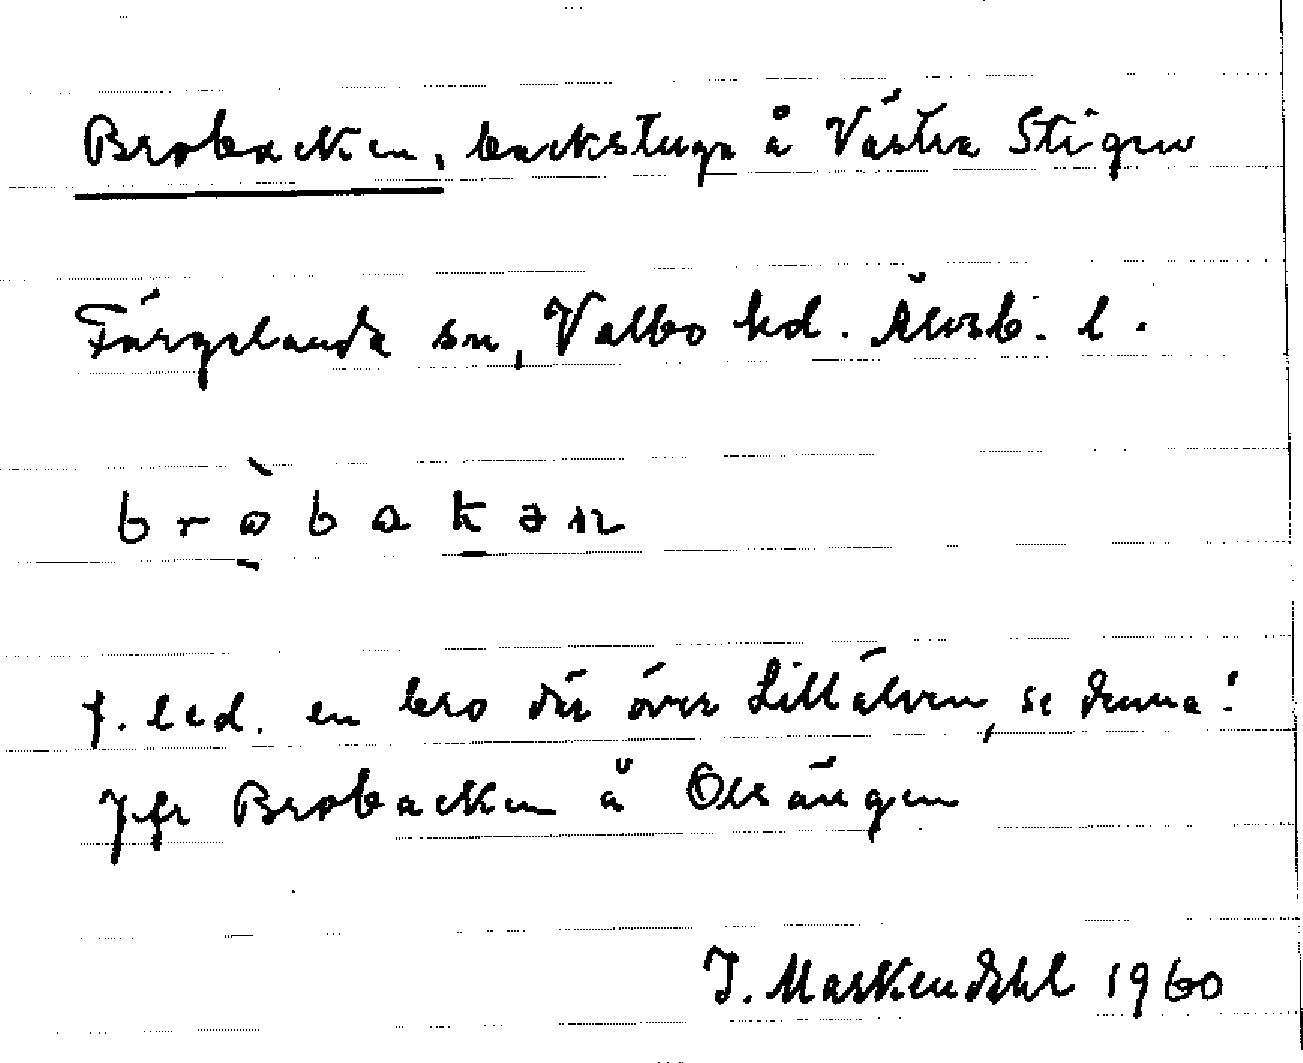 Brobacken, backstuga å Västra Stigen
Färgelanda sn, Valbo hd. Älvsb. l.
bròbakən
f. led. en bro där över Lillälven, se denna!
Jfr Brobacken å Olsängen
J. Markendahl 1960